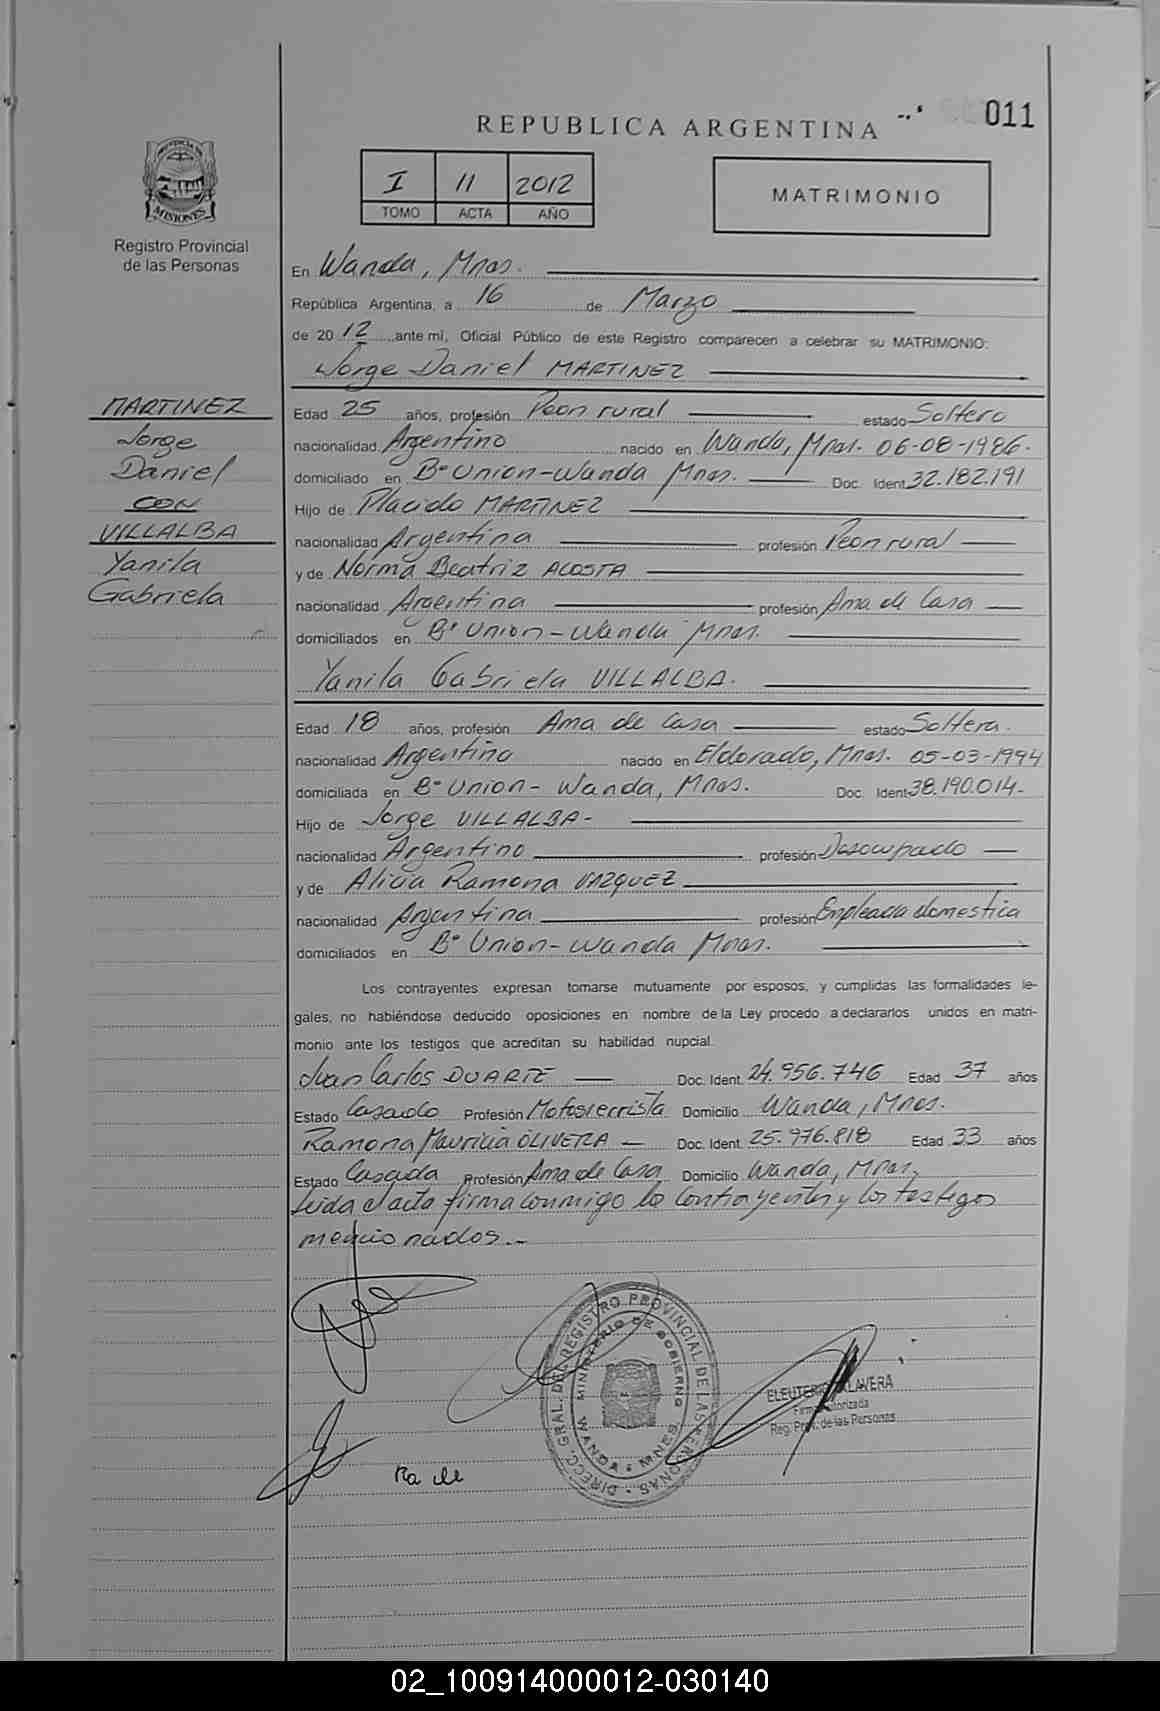 011
REPUBLICA ARGENTINA
I 11 2012
TOMO ACTA AÑO
MATRIMONIO
PROVINCIA DE
MISIONES
Registro Provincial
de las Personas
En Wanda, Mnes.
República Argentina, a 16 de Marzo
de 2012 ante mí, Oficial Público de este Registro comparecen a celebrar su MATRIMONIO:
Jorge Daniel MARTINEZ
MARTINEZ
Jorge
Daniel
CON
VILLALBA
Yanila
Gabriela
Edad 25 años, profesión Peon rural estado Soltero
nacionalidad Argentino nacido en Wanda, Mnes. 06-08-1986.
domiciliado en B° Union-Wanda Mnes. Doc. Ident 32.182.191
Hijo de Placido MARTINEZ
nacionalidad Argentina profesión Peon rural
y de Norma Beatriz ACOSTA
nacionalidad Argentina profesión Ama de Casa
domiciliados en B° Union-Wanda Mnes.
Yanila Gabriela VILLALBA.
Edad 18 años, profesión Ama de Casa estado Soltera.
nacionalidad Argentino nacido en Eldorado, Mnes. 05-03-1994
domiciliada en B° Union- Wanda, Mnes. Doc. Ident 38.190.014-
Hijo de Jorge VILLALBA-
nacionalidad Argentino profesión Desocupado
y de Alicia Ramona VAZQUEZ
nacionalidad Argentina profesión Empleada domestica
domiciliados en B° Union-Wanda Mnes.
Los contrayentes expresan tomarse mutuamente por esposos, y cumplidas las formalidades le-
gales, no habiéndose deducido oposiciones en nombre de la Ley procedo a declararlos unidos en matri-
monio ante los testigos que acreditan su habilidad nupcial.
Juan Carlos DUARTE Doc. Ident. 24.956.746 Edad 37 años
Estado Casado Profesión Motosierrista Domicilio Wanda, Mnes.
Ramona Mauricia OLIVERA Doc. Ident. 25.976.818 Edad 33 años
Estado Casada Profesión Ama de Casa Domicilio Wanda, Mnes,
Leida el acta firma conmigo lo contrayentes y los testigos
mencionados.-
DIRECC. GRAL. DEL REGISTRO PROVINCIAL DE LAS PERSONAS
MINISTERIO DE GOBIERNO
WANDA - MNES
ELEUTERIO TALAVERA
Firma Autorizada
Reg. Prov. de las Personas
02_100914000012-030140